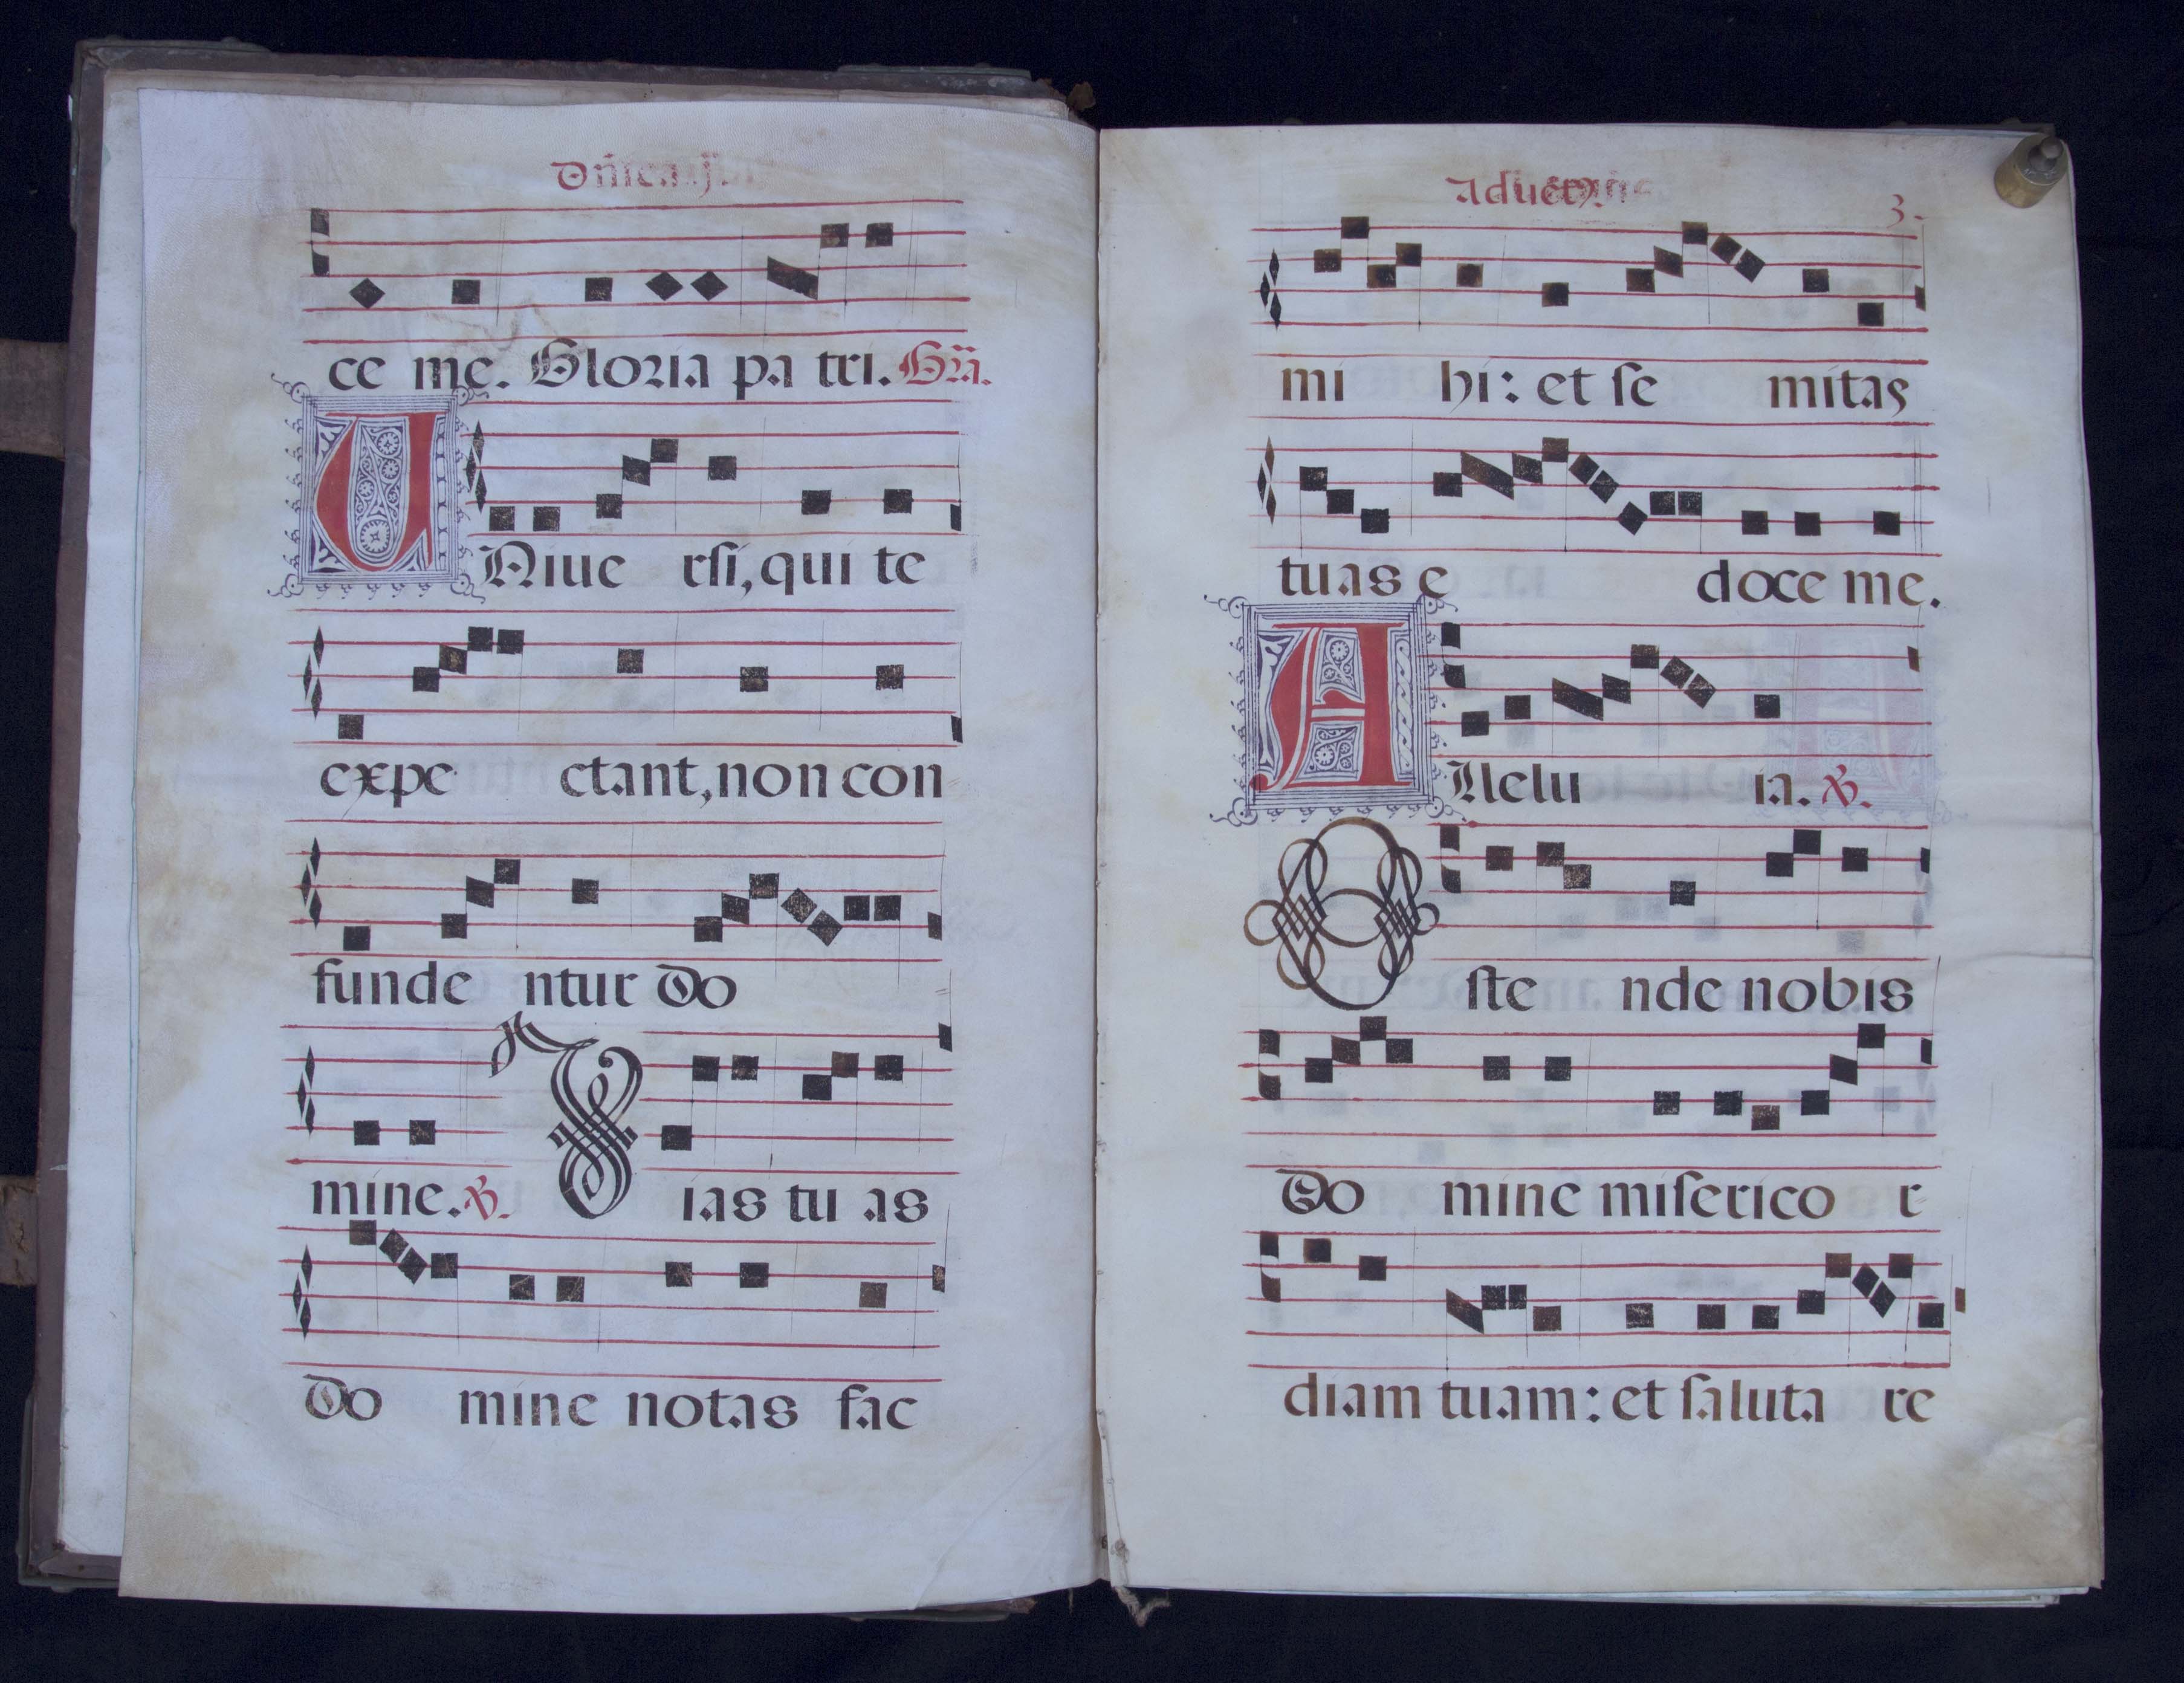 ce me. Gloria pa tri. Gra.
UNiue rſi, qui te
expe ctant, non con
funde ntur Do
mine. ℣. Vias tu as
Do mine notas fac
Aduētꝰ
3.
mi hi: et ſe mitas
tuas e doce me.
ALlelu ia. ℣.
Oſte nde nobis
Do mine miſerico r
diam tuam: et ſaluta re